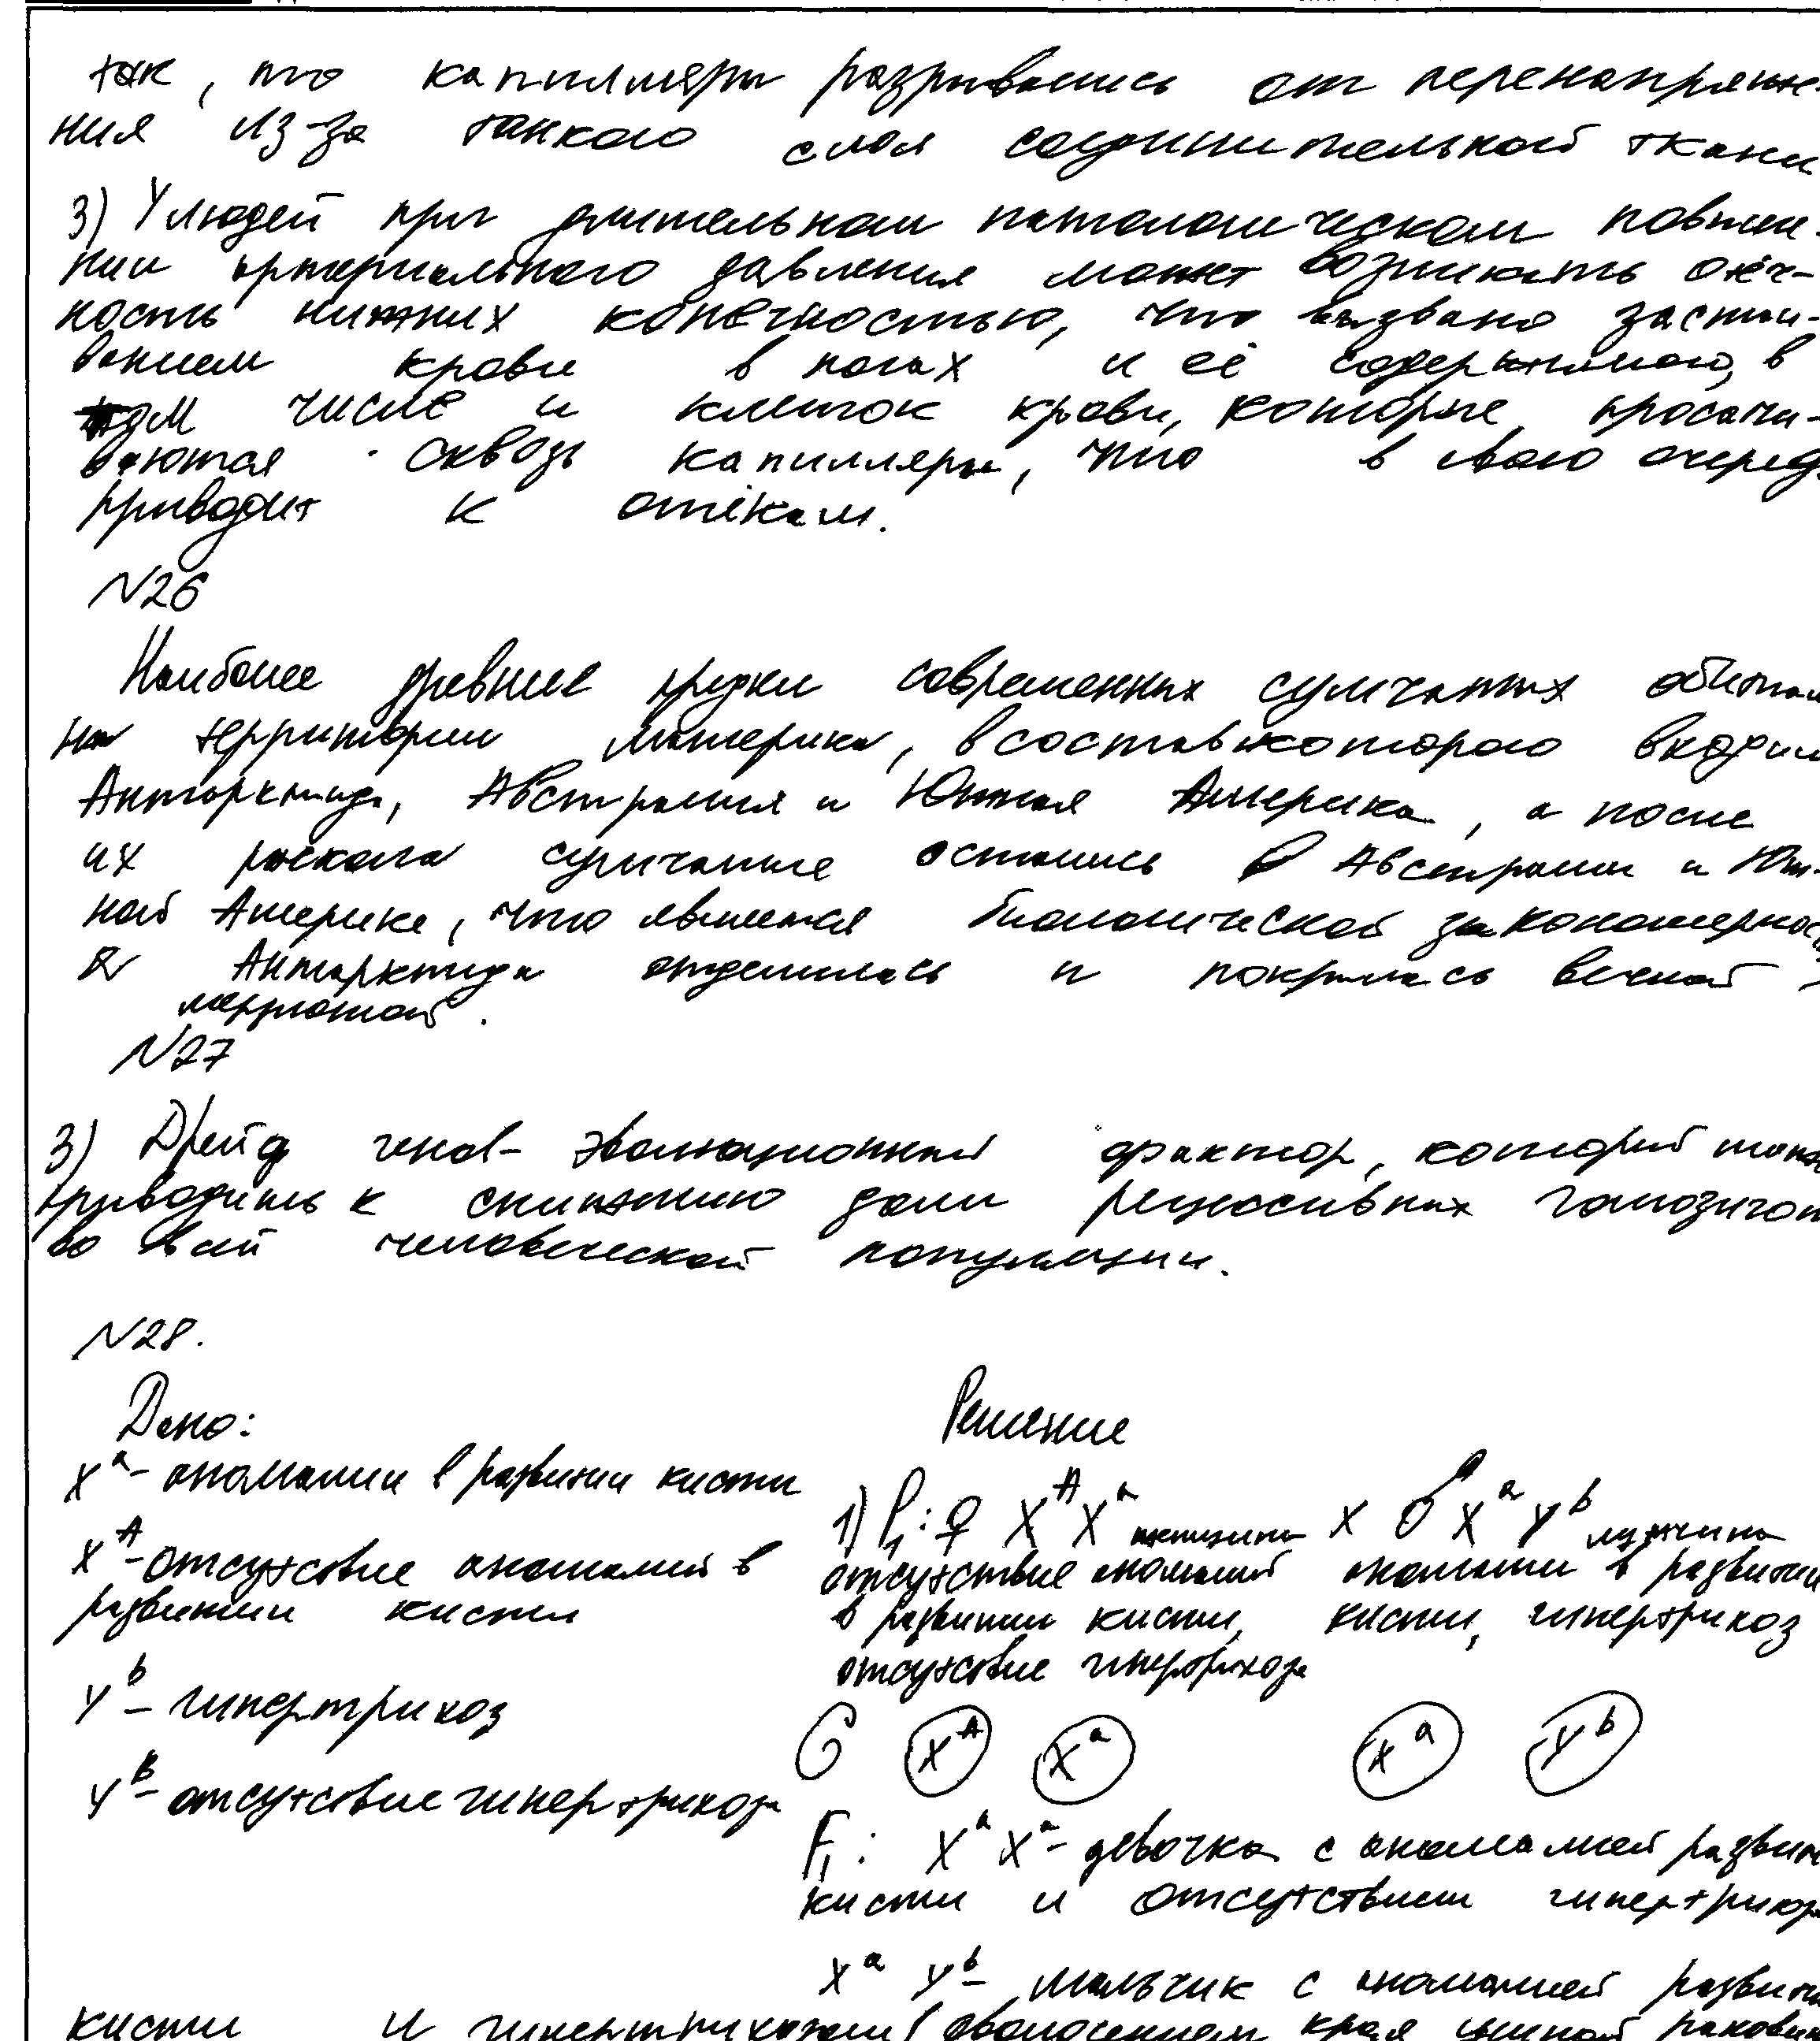 так, что капилляры разрывались от перенапряже-
ния из-за тонкого слоя соединительной ткани
3) У людей при длительном патологическом повыше-
нии артериального давления может возникать отёч-
ность нижних конечностью, что вызвано застаи-
ванием крови в ногах и её содержимого, в
том числе и клеток крови, которые просачи-
ваются сквозь капилляры, что в свою очередь
приводит к отёкам.
N26
Наиболее древние предки современных сумчатых обитали
на территории материка, в состав которого входили
Антарктида, Австралия и Южная Америка, а после
их раскола сумчатые остались в Австралии и Юж-
ной Америке, что является биологической закономерност
Антарктида отделилась и покрылась вечной
мерзлотой.
N27
3) Дрейф генов - эволюционный фактор, который может
приводить к снижению доли рецессивных гомозигот
во всей человеческой популяции.
N28.
Дано:
Решение
X^a - аномалии в развитии кисти
X^A - отсутствие аномалий в
развитии кисти
Y^b - гипертрихоз
Y^B - отсутствие гипертрихоза
1) P₁: ♀ X^A X^a женщина x ♂ X^a Y^b мужчина
отсутствие аномалий аномалии в развитии
в развитии кисти, кисти, гипертрихоз
отсутствие гипертрихоза
G X^A X^a X^a Y^b
F₁: X^a X^a - девочка с аномалией развити
кисти и отсутствием гипертрихоза
X^a Y^b - мальчик с аномалией развити
кисти и гипертрихозом (оволосением края ушной раковин